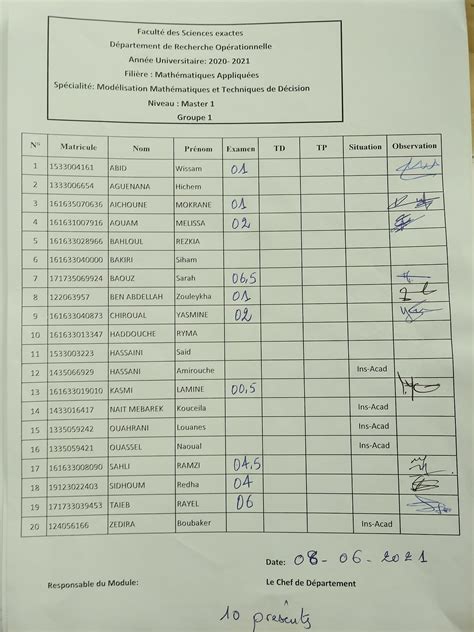 Faculté des Sciences exactes
Département de Recherche Opérationnelle
Année Universitaire: 2020- 2021
Filière : Mathématiques Appliquées
Spécialité: Modélisation Mathématiques et Techniques de Décision
Niveau : Master 1
Groupe 1
N° Matricule Nom Prénom Examen TD TP Situation Observation
1 1533004161 ABID Wissam 01
2 1333006654 AGUENANA Hichem
3 161635070636 AICHOUNE MOKRANE 01
4 161631007916 AOUAM MELISSA 02
5 161633028966 BAHLOUL REZKIA
6 161633040000 BAKIRI Siham
7 171735069924 BAOUZ Sarah 06,5
8 122063957 BEN ABDELLAH Zouleykha 01
9 161633040873 CHIROUAL YASMINE 02
10 161633013347 HADDOUCHE RYMA
11 1533003223 HASSAINI Said
12 1435066929 HASSANI Amirouche Ins-Acad
13 161633019010 KASMI LAMINE 00,5
14 1433016417 NAIT MEBAREK Kouceila Ins-Acad
15 1335059242 OUAHRANI Louanes Ins-Acad
16 1335059421 OUASSEL Naoual Ins-Acad
17 161633008090 SAHLI RAMZI 04,5
18 19123022403 SIDHOUM Redha 04
19 171733039453 TAIEB RAYEL 06
20 124056166 ZEDIRA Boubaker Ins-Acad
Date: 08-06-2021
Responsable du Module: Le Chef de Département
10 présents